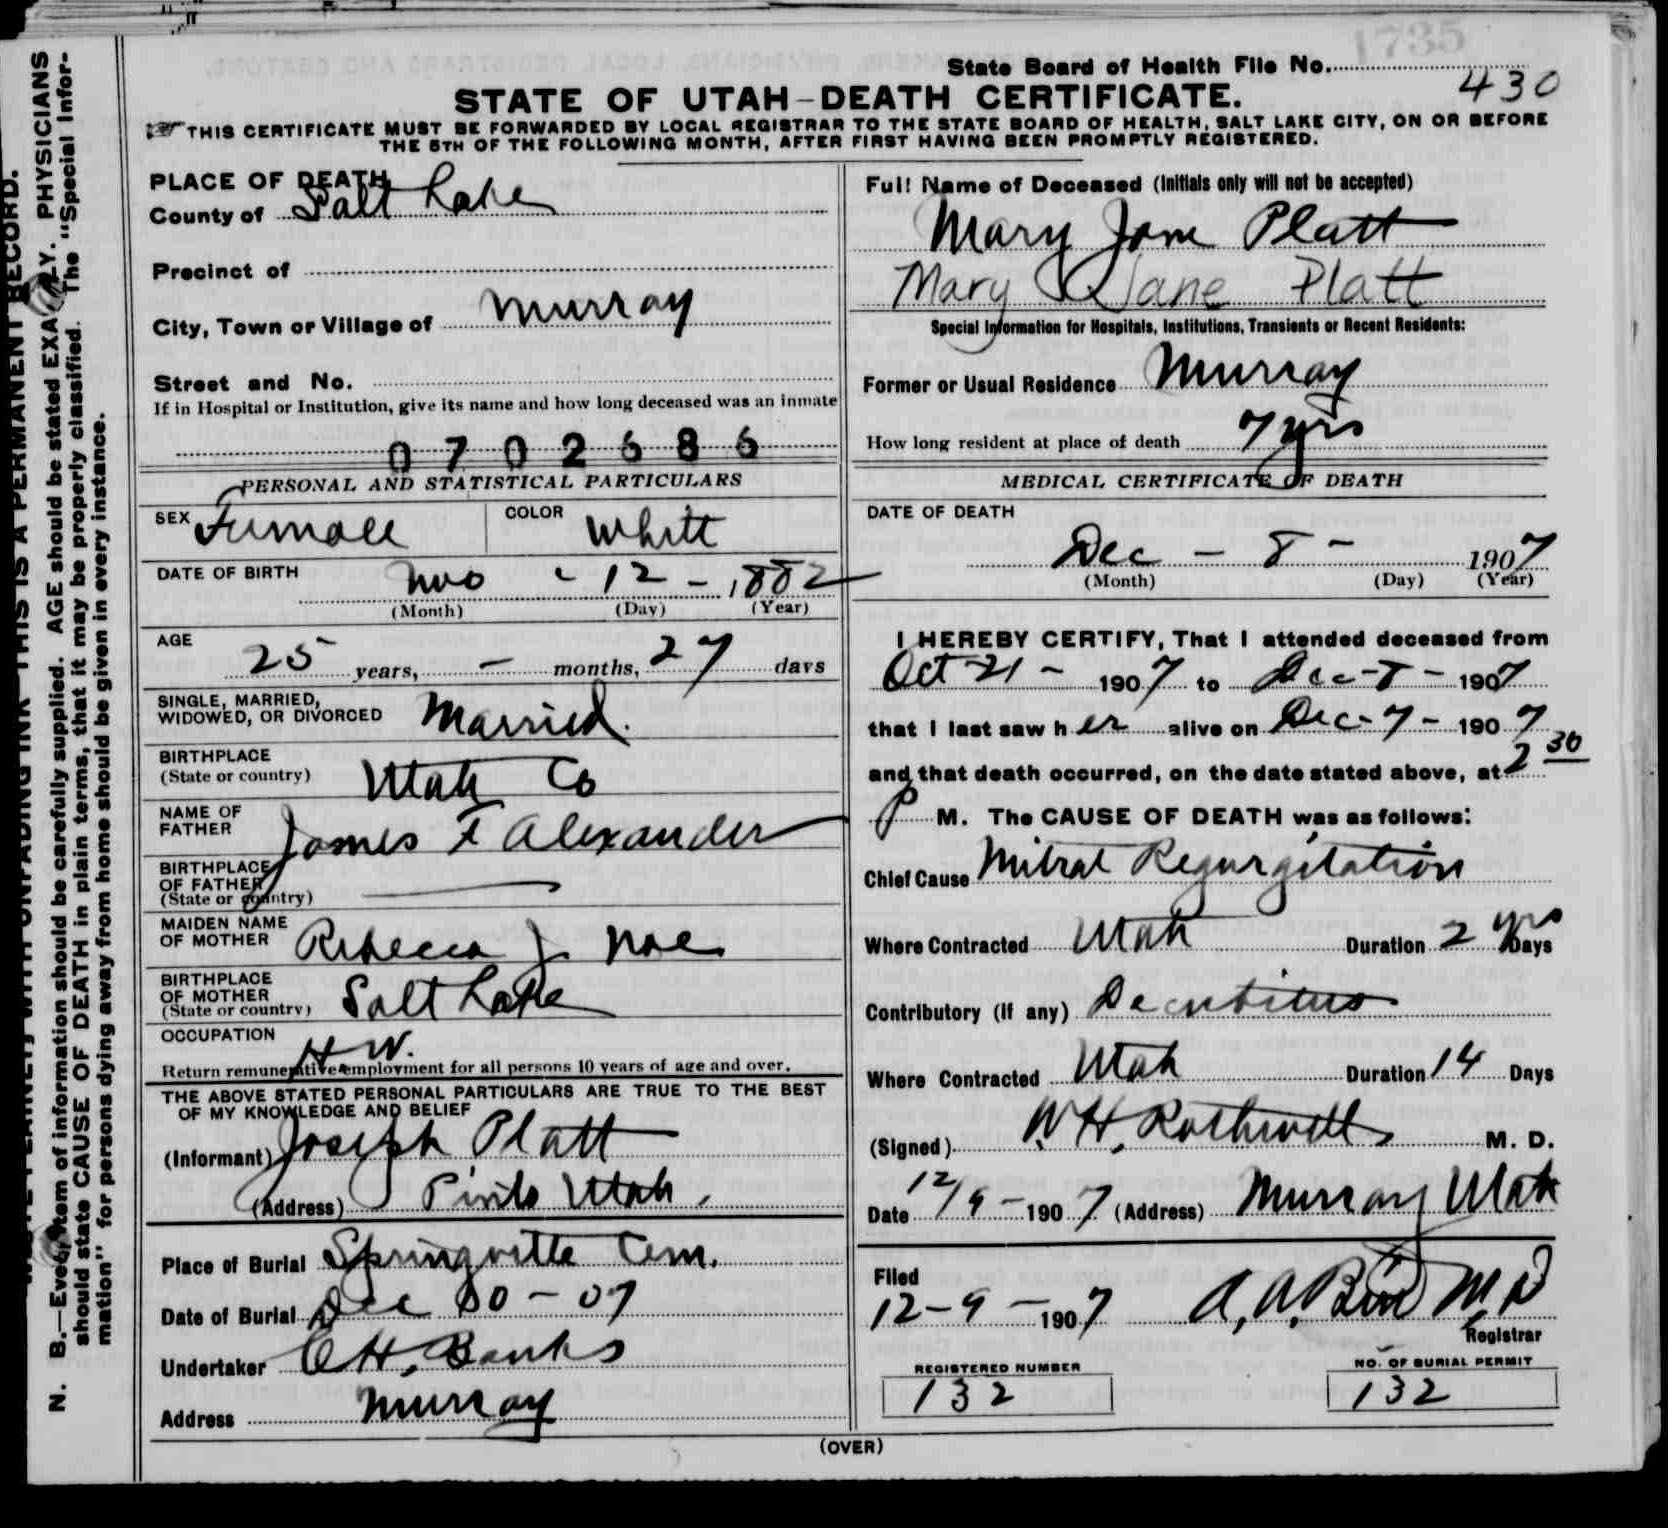 1735
State Board of Health File No. 430
STATE OF UTAH-DEATH CERTIFICATE.
THIS CERTIFICATE MUST BE FORWARDED BY LOCAL REGISTRAR TO THE STATE BOARD OF HEALTH, SALT LAKE CITY, ON OR BEFORE
THE 5TH OF THE FOLLOWING MONTH, AFTER FIRST HAVING BEEN PROMPTLY REGISTERED.
PLACE OF DEATH
County of Salt Lake
Precinct of
City, Town or Village of Murray
Street and No.
If in Hospital or Institution, give its name and how long deceased was an inmate
0702686
PERSONAL AND STATISTICAL PARTICULARS
SEX Female COLOR White
DATE OF BIRTH Nov - 12 - 1882
(Month) (Day) (Year)
AGE
25 years, - months, 27 days
SINGLE, MARRIED,
WIDOWED, OR DIVORCED Married.
BIRTHPLACE
(State or country) Utah Co
NAME OF
FATHER James F Alexander
BIRTHPLACE
OF FATHER
(State or country)
MAIDEN NAME
OF MOTHER Rebecca J. Noe
BIRTHPLACE
OF MOTHER
(State or country) Salt Lake
OCCUPATION
H W.
Return remunerative employment for all persons 10 years of age and over.
THE ABOVE STATED PERSONAL PARTICULARS ARE TRUE TO THE BEST
OF MY KNOWLEDGE AND BELIEF
(Informant) Joseph Platt
(Address) Pinto Utah.
Place of Burial Springville Cem.
Date of Burial Dec 10 - 07
Undertaker O H. Banks
Address Murray
Full Name of Deceased (Initials only will not be accepted)
Mary Jane Platt
Mary Jane Platt
Special Information for Hospitals, Institutions, Transients or Recent Residents:
Former or Usual Residence Murray
How long resident at place of death 7 yrs
MEDICAL CERTIFICATE OF DEATH
DATE OF DEATH
Dec - 8 - 1907
(Month) (Day) (Year)
I HEREBY CERTIFY, That I attended deceased from
Oct 21 - 1907 to Dec - 8 - 1907
that I last saw her alive on Dec - 7 - 1907
and that death occurred, on the date stated above, at 2 30
P M. The CAUSE OF DEATH was as follows:
Chief Cause Mitral Regurgitation
Where Contracted Utah Duration 2 yrs Days
Contributory (if any) Decubitus
Where Contracted Utah Duration 14 Days
(Signed) W. H. Rothwell M. D.
Date 12/9 - 1907 (Address) Murray Utah
Filed
12-9-1907 A. A. Bird M. D
Registrar
REGISTERED NUMBER
132
NO. OF BURIAL PERMIT
132
(OVER)
N. B.—Every item of information should be carefully supplied. AGE should be stated EXACTLY. PHYSICIANS
should state CAUSE OF DEATH in plain terms, that it may be properly classified. The "Special Infor-
mation" for persons dying away from home should be given in every instance.